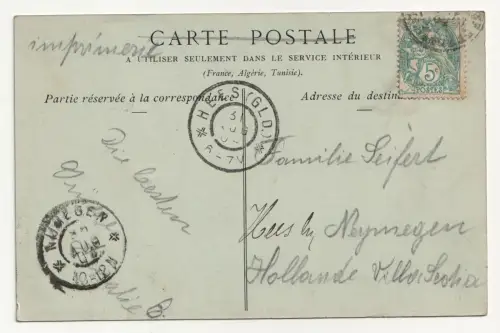 imprimerie
CARTE POSTALE
A UTILISER SEULEMENT DANS LE SERVICE INTÉRIEUR
(France, Algérie, Tunisie).
Partie réservée à la correspondance
Adresse du destin
5c
POSTES
HEES (GLD.)
31
6-7V
NIJMEGEN
Die besten
Familie Seifert
Hees by Nymegen
Hollande Villa Scotia